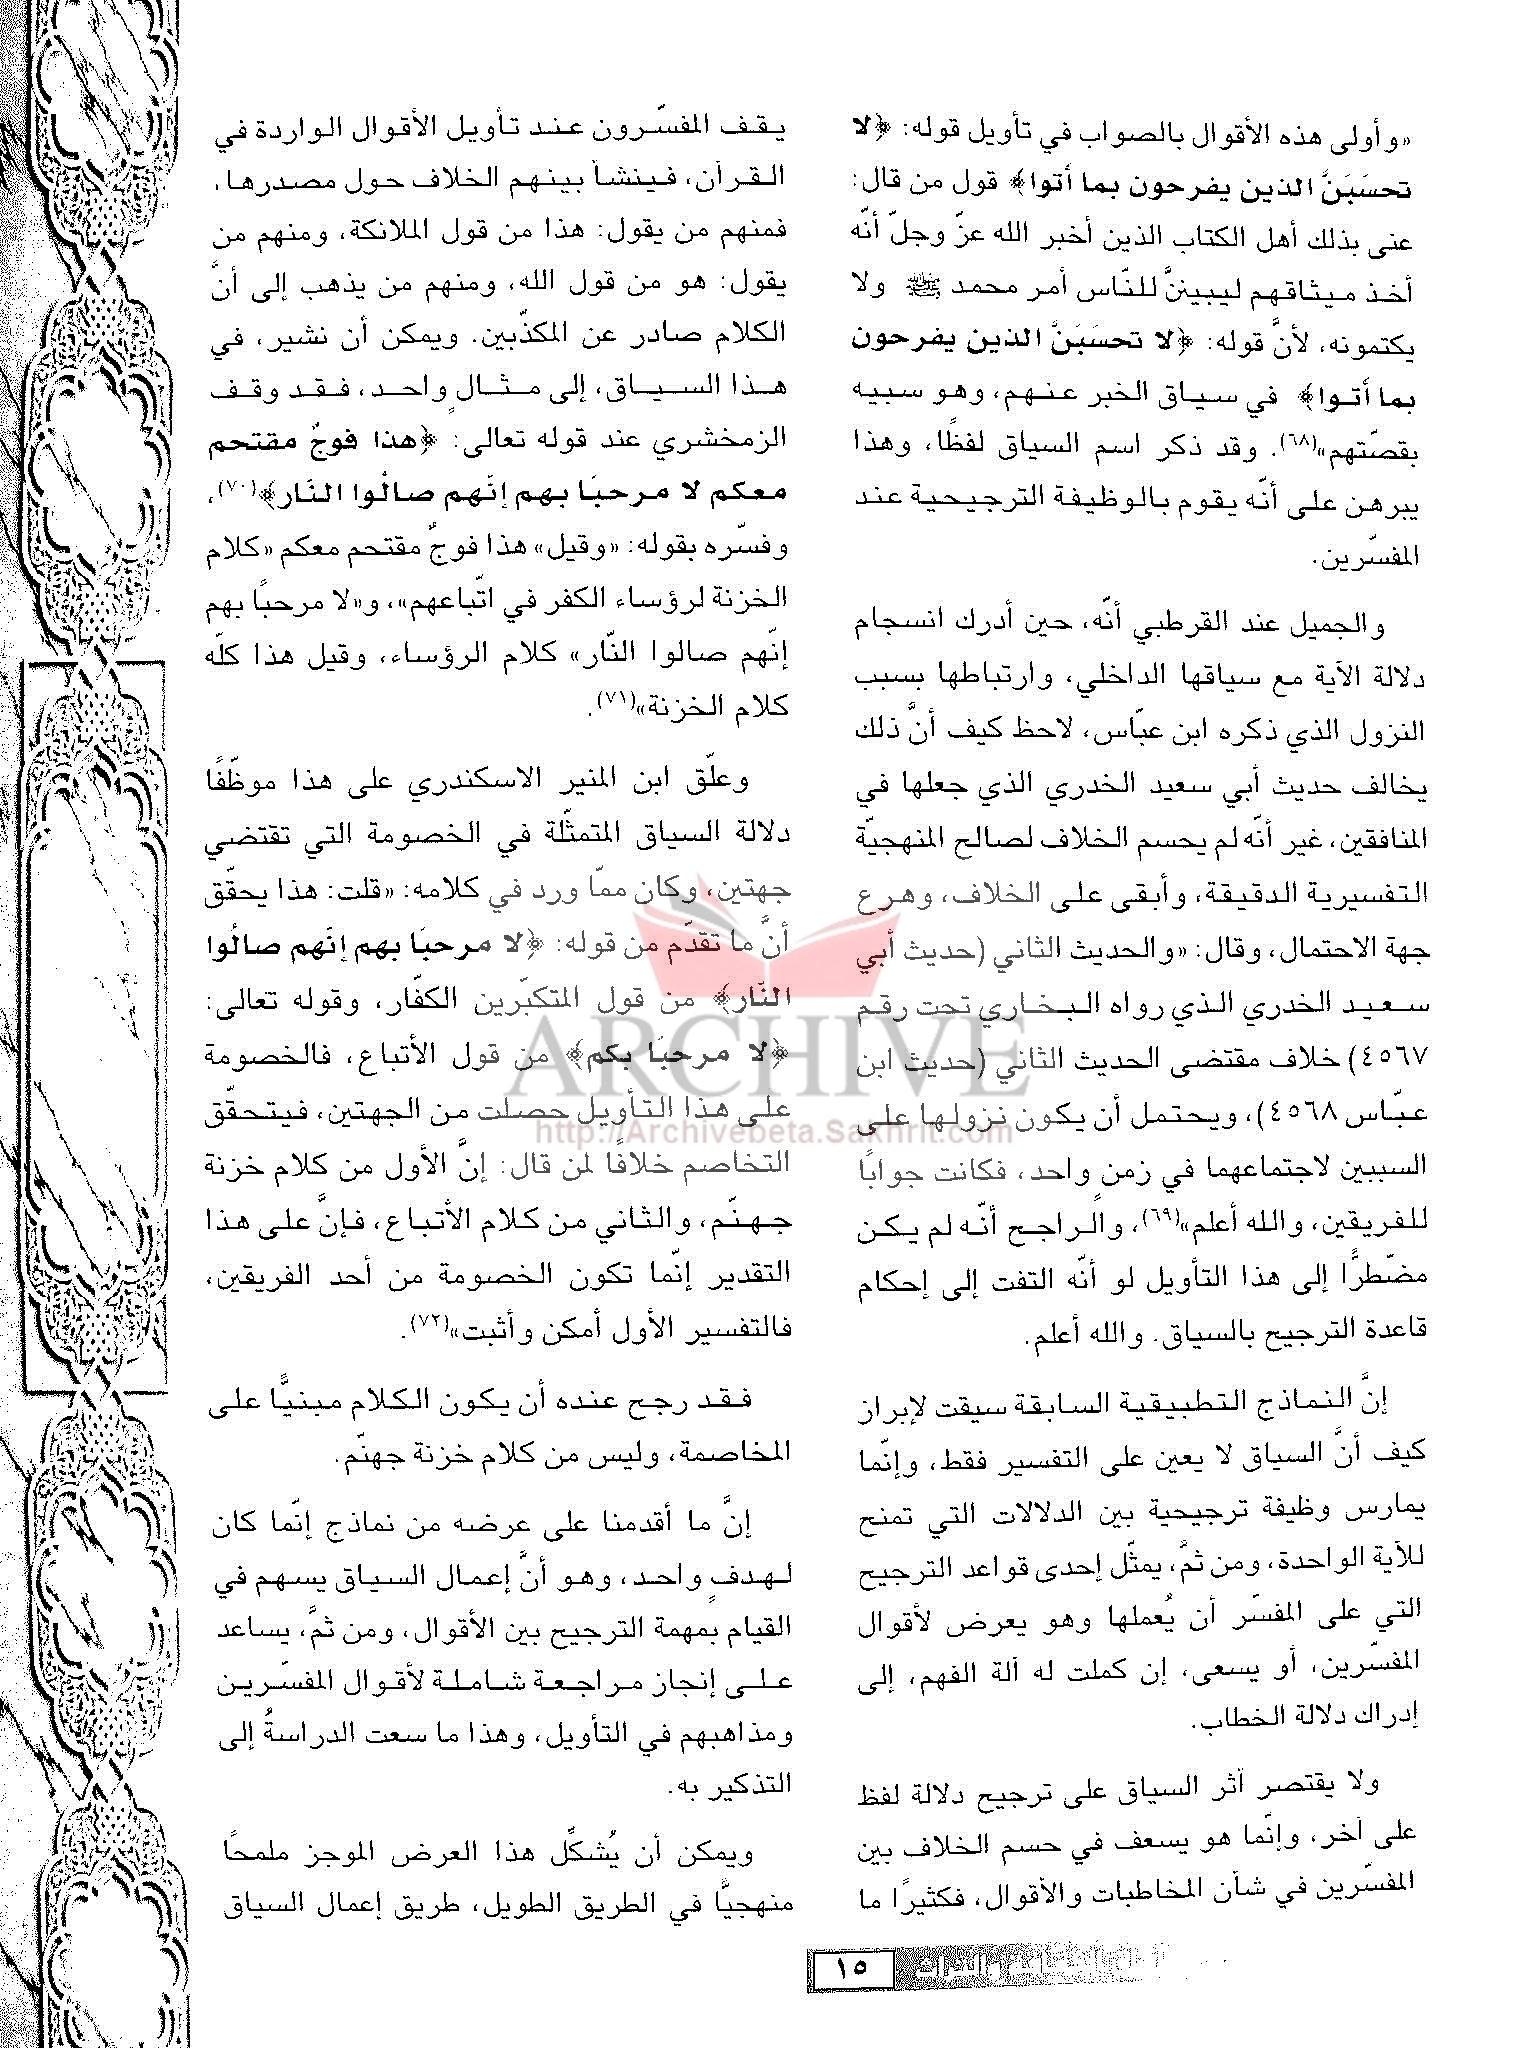 «وأولى هذه الأقوال بالصواب في تأويل قوله: ﴿لا
تحسَبَنَّ الذين يفرحون بما أتوا﴾ قول من قال:
عنى بذلك أهل الكتاب الذين أخبر الله عزّ وجلّ أنّه
أخذ ميثاقهم ليبيننَّ للنّاس أمر محمد ﷺ ولا
يكتمونه، لأنَّ قوله: ﴿لا تحسَبَنَّ الذين يفرحون
بما أتوا﴾ في سياق الخبر عنهم، وهو سبيه
بقصّتهم»(٦٨). وقد ذكر اسم السياق لفظًا، وهذا
يبرهن على أنّه يقوم بالوظيفة الترجيحية عند
المفسّرين.
والجميل عند القرطبي أنّه، حين أدرك انسجام
دلالة الآية مع سياقها الداخلي، وارتباطها بسبب
النزول الذي ذكره ابن عبّاس، لاحظ كيف أنَّ ذلك
يخالف حديث أبي سعيد الخدري الذي جعلها في
المنافقين، غير أنّه لم يحسم الخلاف لصالح المنهجيّة
التفسيرية الدقيقة، وأبقى على الخلاف، وهرع
جهة الاحتمال، وقال: «والحديث الثاني (حديث أبي
سعيد الخدري الذي رواه البخاري تحت رقم
٤٥٦٧) خلاف مقتضى الحديث الثاني (حديث ابن
عبّاس ٤٥٦٨)، ويحتمل أن يكون نزولها على
السببين لاجتماعهما في زمنٍ واحد، فكانت جوابًا
للفريقين، والله أعلم»(٦٩)، والراجح أنّه لم يكن
مضّطرًّا إلى هذا التأويل لو أنّه التفت إلى إحكام
قاعدة الترجيح بالسياق. والله أعلم.
إنَّ النماذج التطبيقية السابقة سيقت لإبراز
كيف أنَّ السياق لا يعين على التفسير فقط، وإنّما
يمارس وظيفة ترجيحية بين الدلالات التي تمنح
للآية الواحدة، ومن ثمَّ، يمثّل إحدى قواعد الترجيح
التي على المفسّر أن يُعملها وهو يعرض لأقوال
المفسّرين، أو يسعى، إن كملت له آلة الفهم، إلى
إدراك دلالة الخطاب.
ولا يقتصر أثر السياق على ترجيح دلالة لفظ
على آخر، وإنّما هو يسعف في حسم الخلاف بين
المفسّرين في شأن المخاطبات والأقوال، فكثيرًا ما
يقف المفسّرون عند تأويل الأقوال الواردة في
القرآن، فينشأ بينهم الخلاف حول مصدرها،
فمنهم من يقول: هذا من قول الملائكة، ومنهم من
يقول: هو من قول الله، ومنهم من يذهب إلى أنَّ
الكلام صادر عن المكذّبين. ويمكن أن نشير، في
هذا السياق، إلى مثالٍ واحد، فقد وقف
الزمخشري عند قوله تعالى: ﴿هذا فوجٌ مقتحم
معكم لا مرحبًا بهم إنّهم صالُوا النّار﴾(٧٠)،
وفسّره بقوله: «وقيل» هذا فوجٌ مقتحم معكم «كلام
الخزنة لرؤساء الكفر في اتّباعهم»، و«لا مرحبًا بهم
إنّهم صالوا النّار» كلام الرؤساء، وقيل هذا كلّه
كلام الخزنة»(٧١).
وعلّق ابن المنير الاسكندري على هذا موظّفًا
دلالة السياق المتمثّلة في الخصومة التي تقتضي
جهتين، وكان ممّا ورد في كلامه: «قلت: هذا يحقّق
أنَّ ما تقدّم من قوله: ﴿لا مرحبًا بهم إنّهم صالُوا
النّار﴾ من قول المتكبّرين الكفّار، وقوله تعالى:
﴿لا مرحبًا بكم﴾ من قول الأتباع، فالخصومة
على هذا التأويل حصلت من الجهتين، فيتحقّق
التخاصم خلافًا لمن قال: إنَّ الأول من كلام خزنة
جهنّم، والثاني من كلام الأتباع، فإنَّ على هذا
التقدير إنّما تكون الخصومة من أحد الفريقين،
فالتفسير الأول أمكن وأثبت»(٧٢).
فقد رجح عنده أن يكون الكلام مبنيًّا على
المخاصمة، وليس من كلام خزنة جهنّم.
إنَّ ما أقدمنا على عرضه من نماذج إنّما كان
لهدفٍ واحد، وهو أنَّ إعمال السياق يسهم في
القيام بمهمة الترجيح بين الأقوال، ومن ثمَّ، يساعد
على إنجاز مراجعة شاملة لأقوال المفسّرين
ومذاهبهم في التأويل، وهذا ما سعت الدراسةُ إلى
التذكير به.
ويمكن أن يُشكّل هذا العرض الموجز ملمحًا
منهجيًّا في الطريق الطويل، طريق إعمال السياق
ARCHIVE
http://Archivebeta.Sakhrit.com
١٥